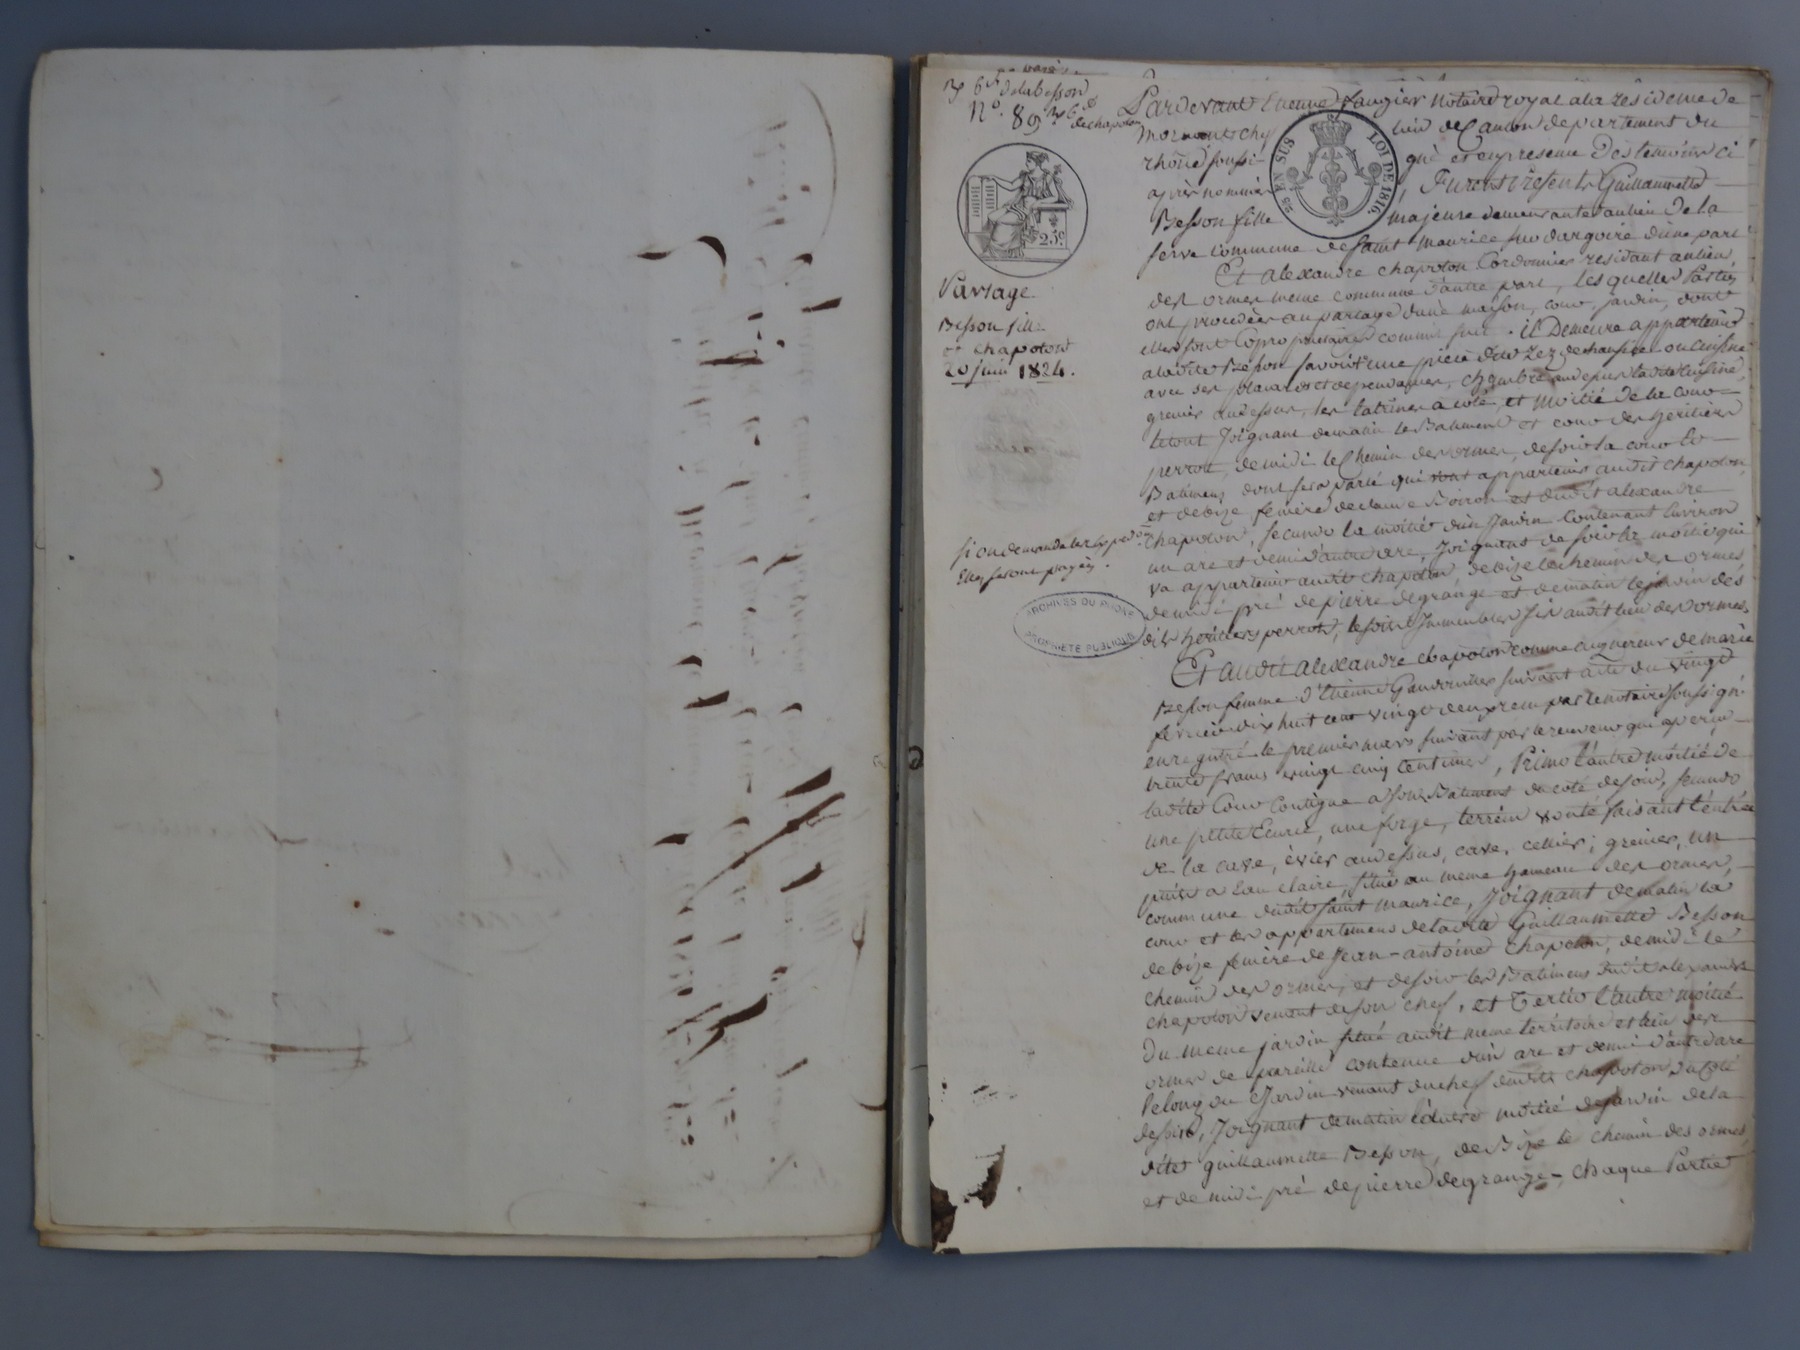 N°. 89
de chapoton
25 c
EN SUS
LOI DE 1816.
Partage
Besson fille
et chapoton
20 juin 1824.
si on demande les
Elles seront payées.
ARCHIVES DU RHONE
PROPRIÉTÉ PUBLIQUE
Pardevant Etienne Faugier Notaire royal a la residence de
Mornant chef lieu de Canton departement du
rhône soussigné et en presence des temoins ci
après nommés, Furent Présents Guillaumette
Besson fille majeure demeurante au lieu de la
commune de saint maurice sur dargoire d'une part
Et alexandre chapoton Cordonnier residant au lieu
des ormes meme commune d'autre part, les quelles Parties
ont procédés au partage d'une maison, cour, jardin, dont
elles sont Copropriétaires comme suit. il Demeure appartenir
a ladite Besson savoir une pièce dite rez de chaussée ou cuisine
avec ses placards et dependances, chambre au dessus ladite cuisine,
grenier au dessus, les latrines a coté, et moitié de la cour
le tout Joignant de matin le Batiment et cour des heritiers
perrot, de midi le Chemin des ormes, de soir la cour le
Batiment dont sera parlé qui vont appartenir audit chapoton,
et de bize de claude et dudit alexandre
chapoton, secundo la moitié d'un Jardin Contenant Environ
un are et demi d'autre are, Joignant de soir la moitié qui
va appartenir audit chapoton, de bize le chemin des ormes
de midi pré de pierre degrange et de matin le jardin des
dits heritiers perrot, lesdits Immeubles sis audit lieu des ormes
Et audit alexandre chapoton comme acquereur de marie
Besson femme d'Etienne suivant acte du vingt
fevrier dix huit cent vingt deux reçu par le notaire soussigné
enregistré le premier mars suivant par le receveur qui a perçu
trente francs vingt cinq Centimes, Primo l'autre moitié de
ladite Cour Contigue a son Batiment du coté de soir, secundo
une petite Ecurie, une forge, terrein vouté faisant l'entrée
de la cave, évier au dessus, cave, cellier, grenier, un
puits a Eau claire, situé au meme hameau des ormes,
commune dudit saint Maurice, Joignant de matin la
cour et les appartemens de ladite Guillaumette Besson
de bize de Jean-antoine Chapoton, de midi le
chemin des ormes, et de soir les Batimens dudit alexandre
chapoton venant de son chef, et Tertio l'autre moitié
du meme jardin situé audit meme territoire et lieu des
ormes de pareille contenue d'un are et demi d'autre are
le long du Jardin venant du chef dudit chapoton du Coté
de soir, Joignant de matin l'autre moitié de jardin de la
dite guillaumette Besson, de Bize le chemin des ormes,
et de midi pré de pierre degrange, chaque Partie